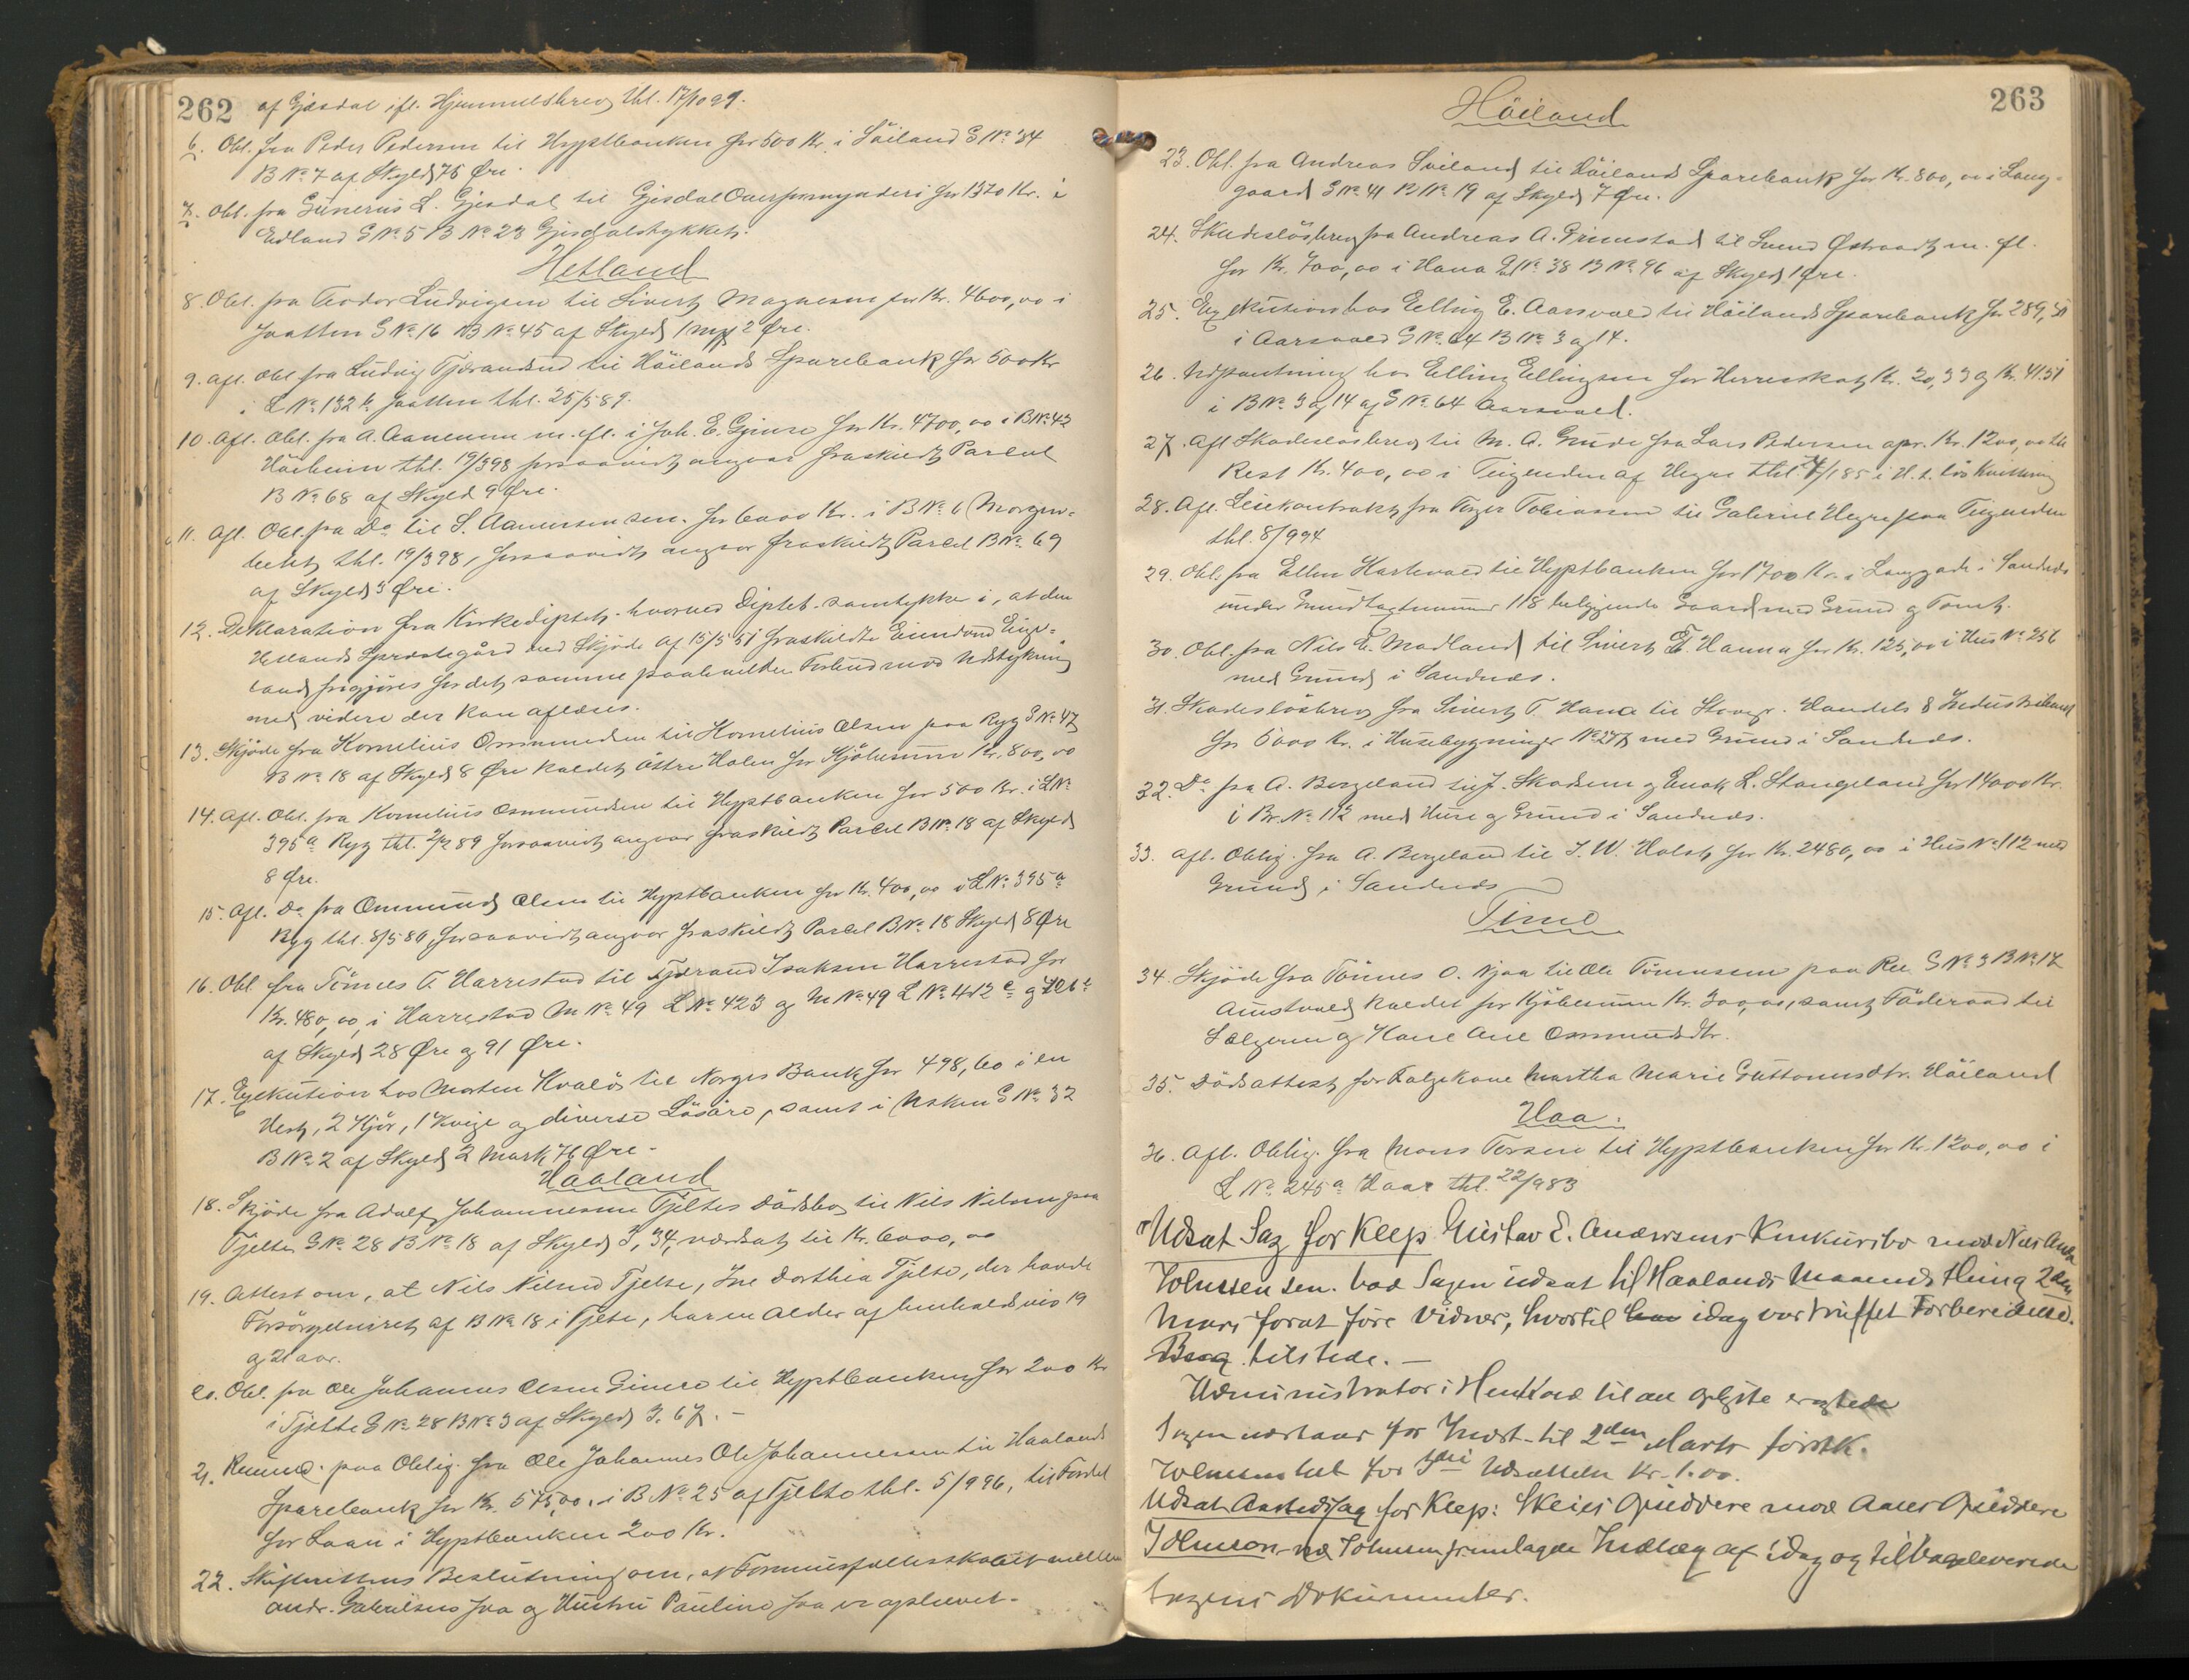 262 af Gjesdal ifl. Hjemmelsbrev thl. 17/10 99.
6. Obl. fra Peder Pedersen til Hyptbanken for 500 Kr. i Söiland G No 34
B No 7 af Skyld 76 Öre.
7. Obl. fra Gunerius L. Gjesdal til Gjesdal Overformynderi for 1320 Kr. i
Edland G No 5 B No 23 Gjesdalstykket.
Hetland
8. Obl. fra Teodor Ludvigsen til Sivert Magnesen for Kr. 4600,00 i
Jaatten G No 16 B No 45 af Skyld 1 mrk 2 Öre.
9. Afl. Obl. fra Ludvig Tjerandsen til Höilands Sparebank for 500 Kr
i L No 132 b Jaatten thl. 25/5 89.
10. Afl. Obl. fra A. Aanensen m. fl. i Joh. E. Gjemre for Kr. 4700,00 i B No 42
thl. 19/3 98 forsaavidt angaar fraskildt Parcel
B No 68 af Skyld 9 Öre.
11. Afl. Obl. fra Do til S. Aanensen sen. for 6000 Kr. i B No 6 Morgen-
thl. 19/3 98, forsaavidt angaar fraskildt Parcel B No 69
af Skyld 3 Öre.
12. Deklaration fra Kirkedeptet. hvorved Deptet. samtykker i, at den
Hetlands Præstegård ved Skjöde af 15/5 51 fraskildte Eiendom Eige-
land frigjöres for det samme paahvilende Forbud mod Udstykning
med videre der kan aflæses.
13. Skjöde fra Kornelius Ommundsen til Kornelius Olsen paa Ryg G No 47
B No 18 af Skyld 8 Öre kaldet Östre Holen for Kjöbesum Kr. 800,00
14. Afl. Obl. fra Kornelius Ommundsen til Hyptbanken for 500 Kr. i L No
395 a Ryg thl. 2/2 89 forsaavidt angaar fraskildt Parcel B No 18 af Skyld
8 Öre.
15. Afl. Do fra Ommund Olsen til Hyptbanken for Kr. 400,00 i L No 395 a
Ryg thl. 8/5 86, forsaavidt angaar fraskildt Parcel B No 18 Skyld 8 Öre
16. Obl. fra Tönnes T. Harrestad til Tjerand Isaksen Harrestad for
Kr. 480,00, i Harrestad M No 49 L No 423 og M No 49 L No 412 c og
af Skyld 28 Öre og 91 Öre.
17. Exekution hos Morten Kvalö til Norges Bank for 498,60 i en
Hest, 2 Kjör, 1 Kvige og diverse Lösöre, samt i Asken G No 32
B No 2 af Skyld 2 Mark 76 Öre.
Haaland
18. Skjöde fra Adolf Johannesen Tjeltes Dödsbo til Nils Nilsen paa
Tjelte G No 28 B No 18 af Skyld 3,34, værdsat til Kr. 6000,00
19. Attest om, at Nils Nilsen Tjelte, Ine Dorthea Tjelte, der havde
Forsörgelsesret af B No 18 i Tjelte, har en Alder af henholdsvis 19
og 21 aar.
20. Obl. fra Ole Johannes Olsen Gimre til Hyptbanken for 200 Kr
i Tjelte G No 28 B No 3 af Skyld 3,67.
21. paa Oblig. fra Ole Johannes Ole Johannessen til Haalands
Sparebank for Kr. 575,00, i B No 25 af Tjelte thl. 5/9 96, til Fordel
for Laan i Hyptbanken 200 Kr.
22. Skifterettens Beslutning om, at Formuesfællesskabet mellem
andr. Gabrielsens Joa og Hustru Pauline Joa er ophævet.
263
Höiland
23. Obl. fra Andreas Soiland til Höilands Sparebank for Kr. 800,00 i Lang-
gaard G No 41 B No 19 af Skyld 7 Öre.
24. Skadeslösbrev fra Andreas A. Grimstad til Svend Östraadt m. fl.
for Kr. 700,00 i Hana G No 38 B No 96 af Skyld 1 Öre.
25. Exekution hos Elling E. Aarsvold til Höilands Sparebank for 289,51
i Aarsvold G No 64 B No 3 og 14.
26. Udpantning hos Elling Ellingsen for Herredskat Kr. 20,33 og Kr. 41.51
i B No 3 og 14 af G No 64 Aarsvold.
27. Afl. Skadeslösbrev til M. A. Grude fra Lars Pedersen opr. Kr. 1200,00
Rest Kr. 400,00 i Teigenden af Hegre thl. i H. t. lös Kvittering
28. Afl. Leiekontrakt fra Torger Tobiassen til Gabriel Hegre paa Teigenden
thl. 8/9 94
29. Obl. fra Ellen Hartvald til Hyptbanken for 1700 Kr. i Langgade i Sandnes
under Grundtaxtnummer 118 beliggende Gaard med Grund og Tomt.
30. Obl. fra Nils E. Madland til Sivert T. Hanna for Kr. 125,00 i Hus No 256
med Grund i Sandnes.
31. Skadeslösbrev fra Sivert T. Hana til Stavgr. Handels & Industribank
for 6000 Kr. i Husebygninger No 277 med Grund i Sandnes.
32. Do fra A. Bergeland til J. Skadsem og Enok L. Stangeland for 14000 Kr.
i Br. No 112 med Huse og Grund i Sandnes.
33. Afl. Oblig. fra A. Bergeland til J. W. Holst for Kr. 2480,00 i Hus No 112 med
Grund i Sandnes
Time
34. Skjöde fra Tönnes O. Njaa til Ole Tönnessen paa Ree G No 3 B No 17
Austvold kaldet for Kjöbesum Kr. 300,00, samt Föderaad til
Sælgeren og Kone Ane Ommundsdtr.
35. Dödsattest for Salgskone Martha Marie Guttormsdtr. Höiland
Haa.
36. Afl. Oblig. fra Mons Torsen til Hyptbanken for Kr. 1200,00 i
L No 245 a Haar thl. 22/9 83
Udsat Sag for Klep Gustav E. Andersens Konkursbo mod Nils Andr
Tolnessen sen. bad Sagen udsat til Haalands Maanedsthing 2den
Marts forat före Vidner, hvortil idag var truffet Forberedelse.
Berg tilstede. —
Administrator i Henhold til
Sagen udstaar for til 2den Marts förstk.
for 3die Udsættelse Kr. 1.00.
Udsat Aastedssag for Klep: Skeies Opsiddere mod Aases Opsiddere
Tolnesen fremlagde Indlæg af idag og tilbageleverede
Sagens Dokumenter.